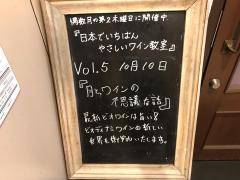 偶数月の第2木曜日に開催中
『日本でいちばん
やさしいワイン教室』
Vol.5 10月10日
『月とワインの
不思議な話』
最新ビオワインは旨い!
ビオディナミワインの新しい
世界を御案内いたします。